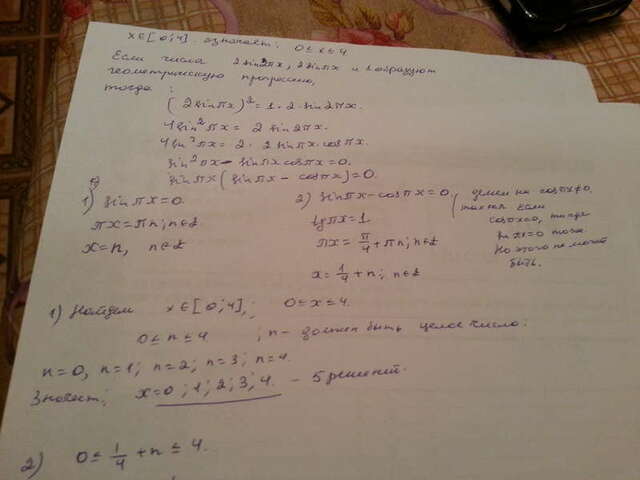 x∈[0;4]. означает: 0≤x≤4
Если числа 2sin2πx, 2sinπx и 1 образуют
геометрическую прогрессию,
тогда:
(2sinπx)² = 1·2·sin2πx.
4sin²πx = 2sin2πx.
4sin²πx = 2·2sinπx·cosπx.
sin²πx - sinπx cosπx = 0.
sinπx(sinπx - cosπx) = 0.
1) sinπx = 0.
πx = πn; n∈Z
x = n, n∈Z
2) sinπx - cosπx = 0.
tgπx = 1
πx = π/4 + πn; n∈Z
x = 1/4 + n; n∈Z
делим на cosπx≠0,
так как если
cosπx=0, тогда
=0 тоже.
Но этого не может
быть.
1) Найдем x∈[0;4]; 0≤x≤4.
0≤n≤4 ; n - должен быть целое число.
n=0, n=1; n=2; n=3; n=4.
Значит; x=0; 1; 2; 3; 4. - 5 решений.
2) 0 ≤ 1/4 + n ≤ 4.